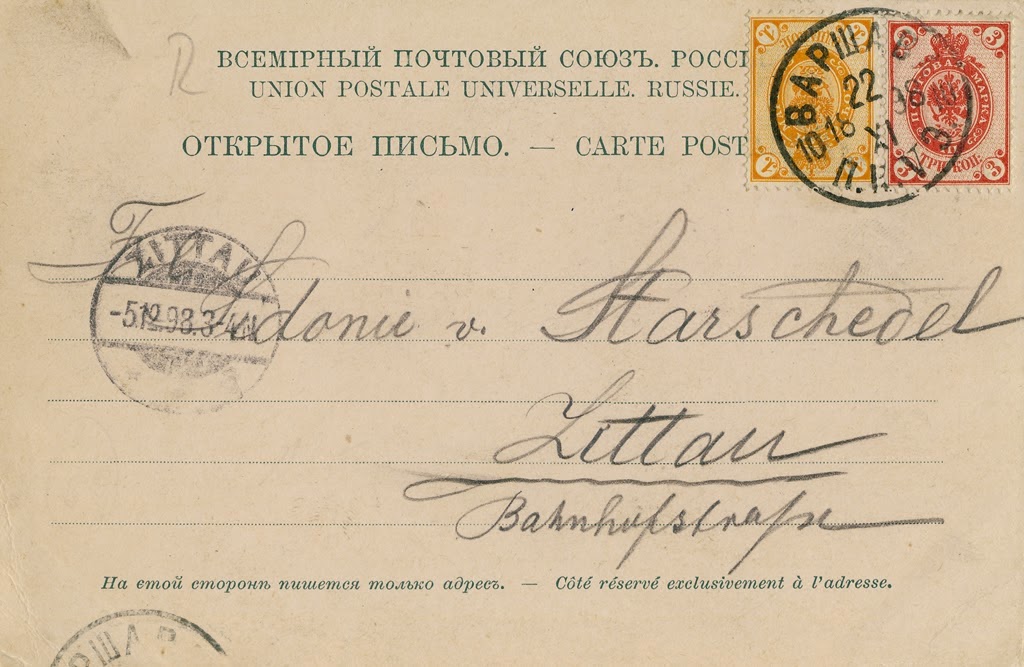 ВСЕМІРНЫЙ ПОЧТОВЫЙ СОЮЗЪ. РОССІ
UNION POSTALE UNIVERSELLE. RUSSIE.
ОТКРЫТОЕ ПИСЬМО. — CARTE POST
ВАРШАВ
22
10-18 XI 98
П.
3 3
ПОЧТОВАЯ МАРКА
ТРИ КОП.
3 3
1
1 1
ZITTAU
-5.12.98.3-4N
Frl. Sidonie v. Starschedel
Zittau
Bahnhofstraße
На етой сторонѣ пишется только адресъ. — Côté réservé exclusivement à l'adresse.
ВАРШАВ